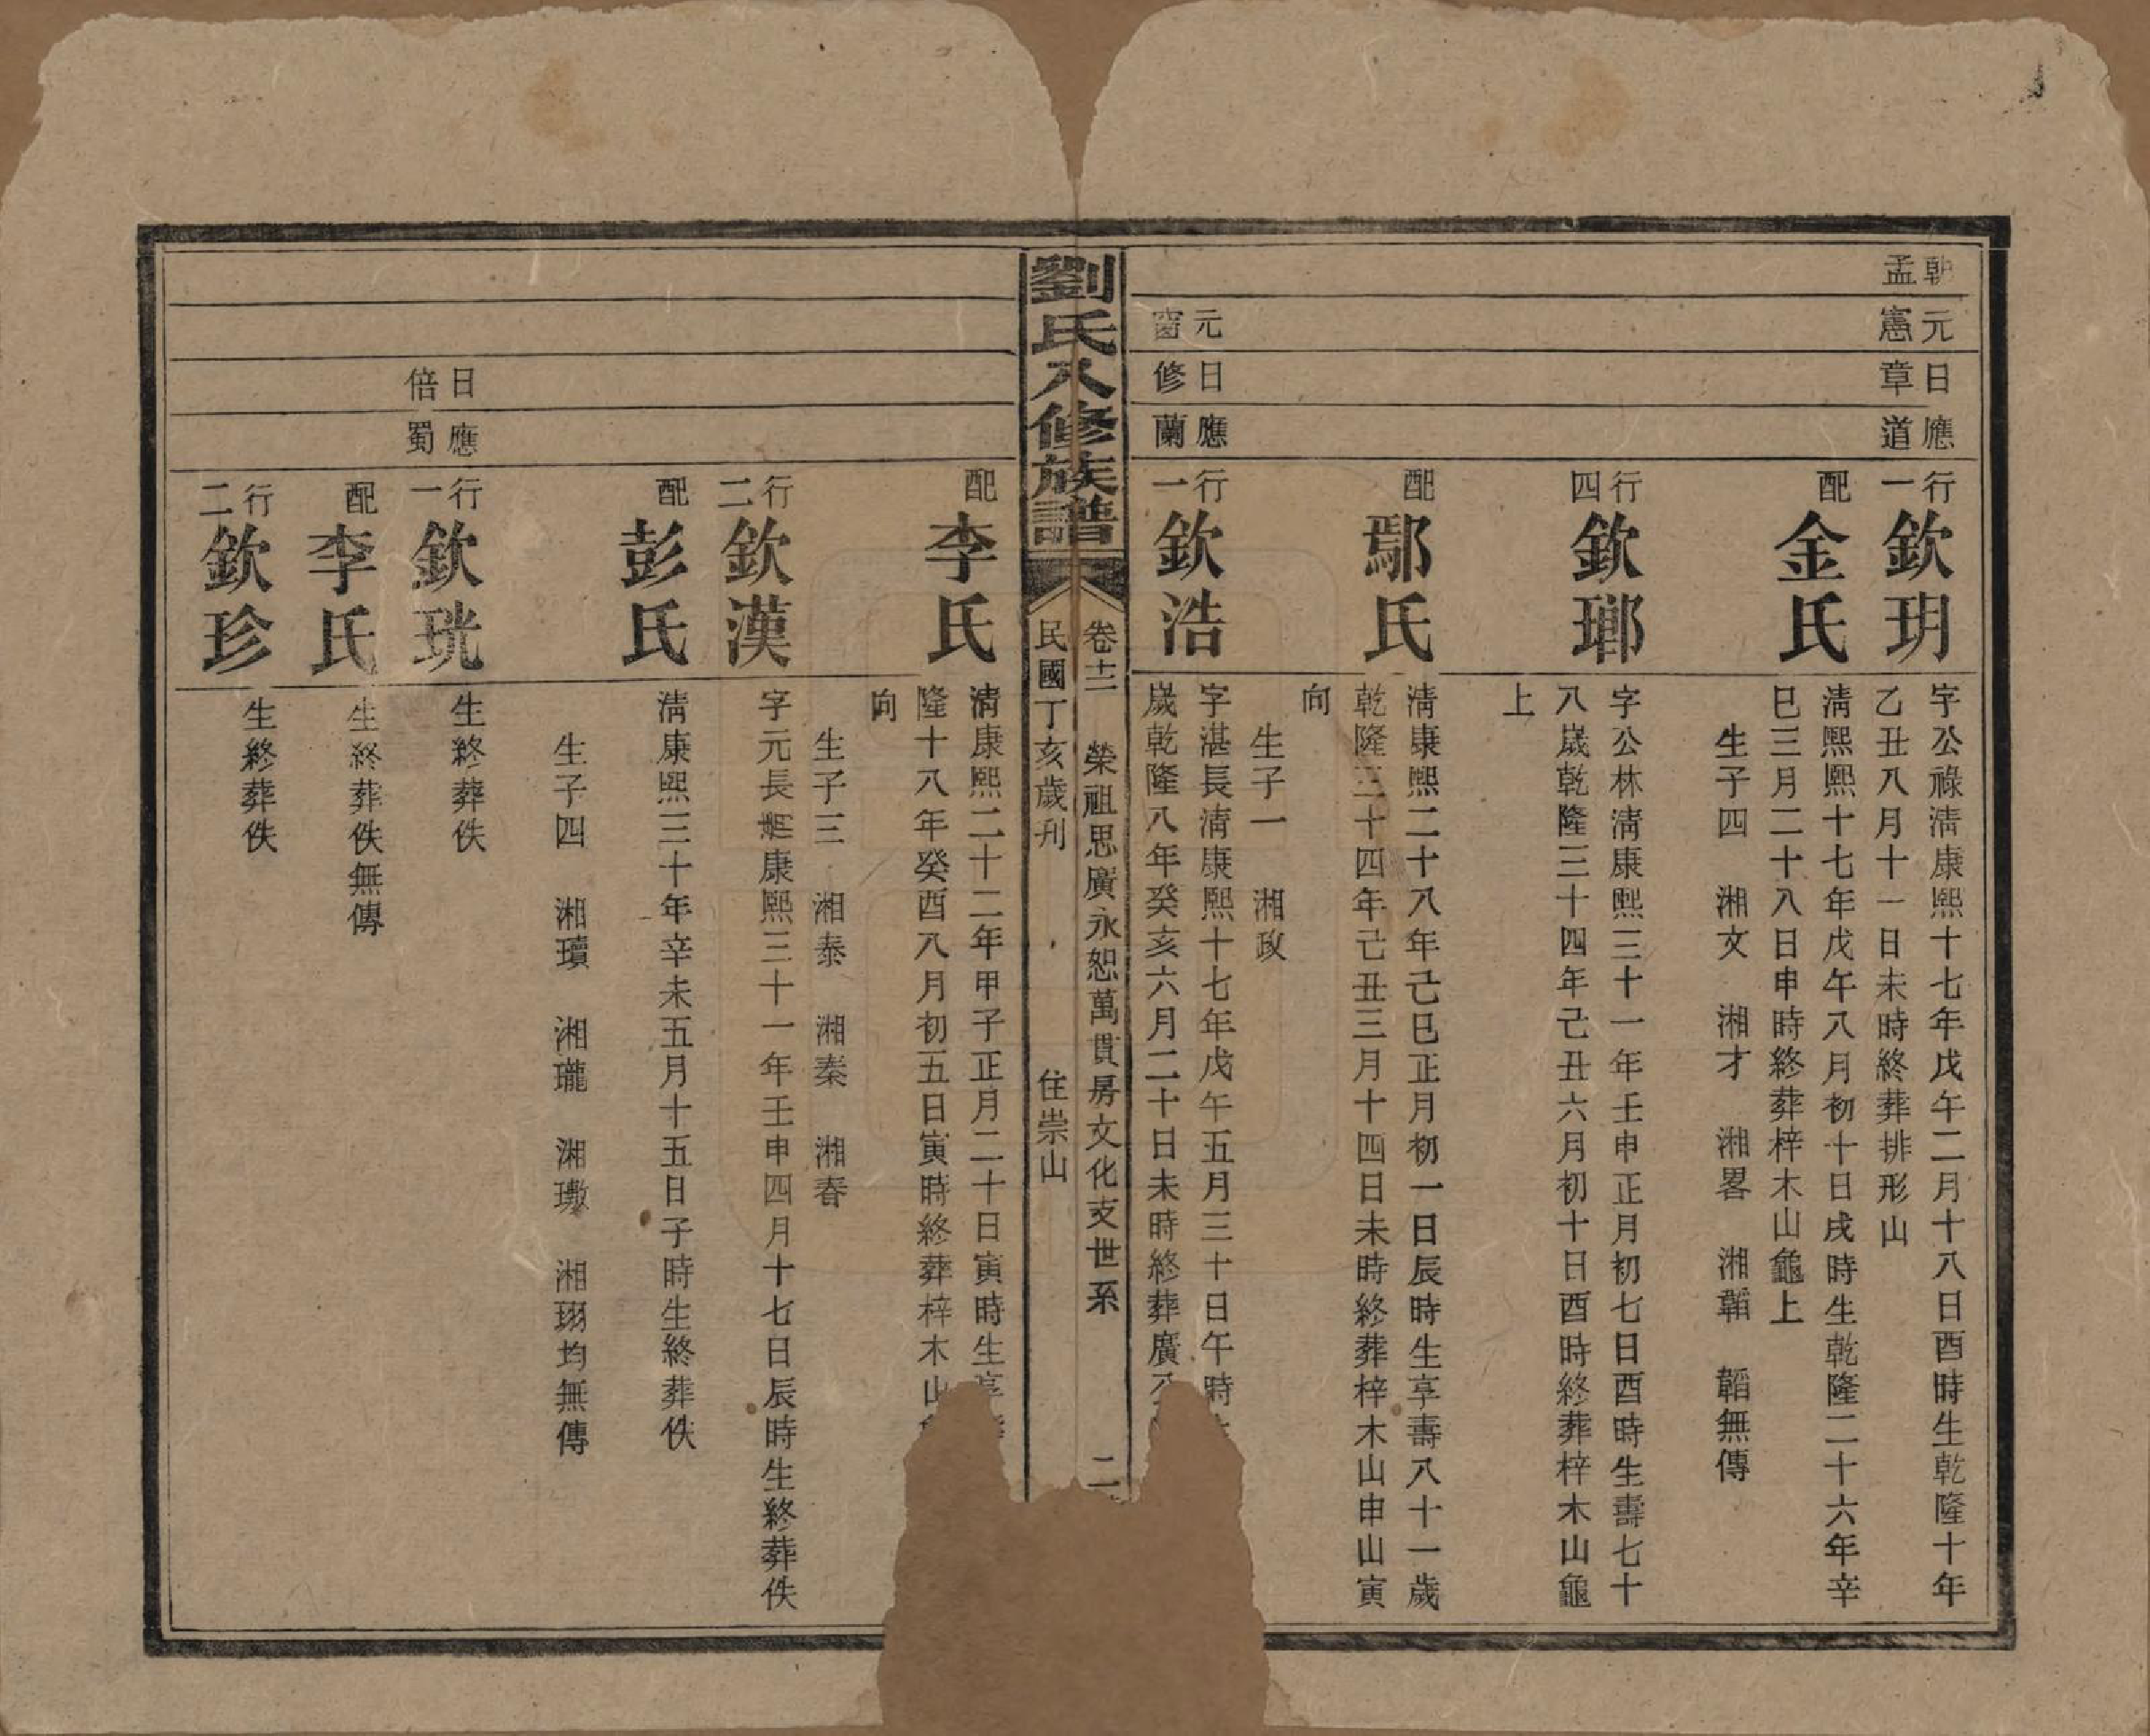 朝孟
元憲
日章
應道
行一
欽玥
字公祿淸康熙十七年戊午二月十八日酉時生乾隆十年
乙丑八月十一日未時終葬排形山
配
金氏
淸熙熙十七年戊午八月初十日戌時生乾隆二十六年辛
巳三月二十八日申時終葬梓木山龜上
生子四 湘文 湘才 湘畧 湘韜 韜無傳
行四
欽瑯
字公林淸康熙三十一年壬申正月初七日酉時生壽七十
八歲乾隆三十四年己丑六月初十日酉時終葬梓木山龜
上
配
鄢氏
淸康熙二十八年己巳正月初一日辰時生享壽八十一歲
乾隆三十四年己丑三月十四日未時終葬梓木山申山寅
向
生子一 湘政
元
日修
應蘭
行一
欽浩
字湛長淸康熙十七年戊午五月三十日午時
歲乾隆八年癸亥六月二十日未時終葬廣
劉氏八修族譜
卷十二 榮祖思廣永恕萬貫房文化支世系 二
民國丁亥歲刋 住崇山
配
李氏
淸康熙二十二年甲子正月二十日寅時生享
隆十八年癸酉八月初五日寅時終葬梓木山
向
生子三 湘泰 湘秦 湘春
行二
欽漢
字元長淸康熙三十一年壬申四月十七日辰時生終葬佚
配
彭氏
淸康熙三十年辛未五月十五日子時生終葬佚
生子四 湘瓚 湘瓏 湘璥 湘珝均無傳
日倍
應蜀
行一
欽珖
生終葬佚
配
李氏
生終葬佚無傳
行二
欽珍
生終葬佚